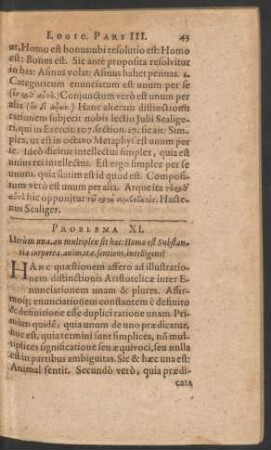 LOGIC. PARS III. 43
ut, Homo est bonus: ubi resolutio est: Homo
est: Bonus est. Sic antè proposita resolvitur
in has: Asinus volat: Asinus habet pennas. 2.
Categoricum enunciatum est unum per se
Conjunctum verò est unum per
alia Hanc alteram distinctionis
rationem subjecit nobis lectio Julii Scalige-
ri, qui in Exercit. 307. section. 27. sic ait: Sim-
plex, ut est in octavo Metaphys. est unum per
se. Ideò dicitur intellectus simplex, quia est
unius rei intellectus. Est ergò simplex per se
unum, quia statim est id quod est. Compos-
tum verò est unum per alia. Atque ista
hic opponitur Hacte-
nus Scaliger.
PROBLEMA XI.
Utrùm una, an multiplex sit hæc: Homo est Substan-
tia corporea, animata, sentiens, intelligens?
HANC quæstionem affero ad illustratio-
nem distinctionis Aristotelicæ inter E-
nunciationem unam & plures. Affir-
moq; enunciationem constantem è definito
& definitione esse duplici ratione unam. Pri-
mùm quidē, quia unum de uno prædicatur,
hoc est, quia termini sunt simplices, nō mul-
tiplices significatione seu æquivoci, seu nulla
est in partibus ambiguitas. Sic & hæc una est:
Animal sentit. Secundò verò, quia prædi-
cata